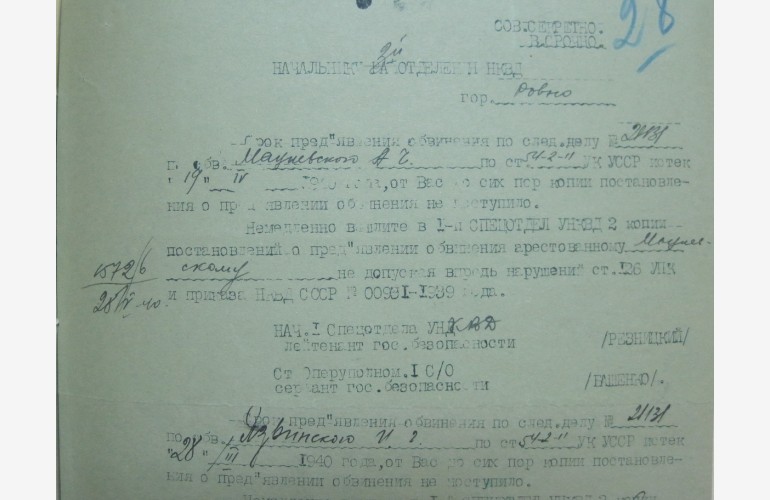 СОВ.СЕКРЕТНО.
28
НАЧАЛЬНИКУ ОТДЕЛЕНИЯ НКВД
гор. Ровно
Срок пред"явления обвинения по след.делу № 21131
по обв. А. Г. по ст. 54-2-11 УК УССР истек
" 19 " IV 1940 года, от Вас до сих пор копии постановле-
ния о пред"явлении обвинения не поступило.
Немедленно вышлите в 1-й СПЕЦОТДЕЛ УНКВД 2 копии
постановлений о пред"явлении обвинения арестованному
скому не допуская впредь нарушений ст.126 УПК
и приказа НКВД СССР № 00931-1939 года.
НАЧ.I Спецотдела УНКВД
лейтенант гос.безопасности /РЕЗНИЦКИЙ/
Ст Оперуполном.I С/О
сержант гос.безопасности /ГАЩЕНКО/.
Срок пред"явления обвинения по след.делу № 21131
по обв. по ст. 54-2-11 УК УССР истек
"28" III 1940 года, от Вас до сих пор копии постановле-
ния о пред"явлении обвинения не поступило.